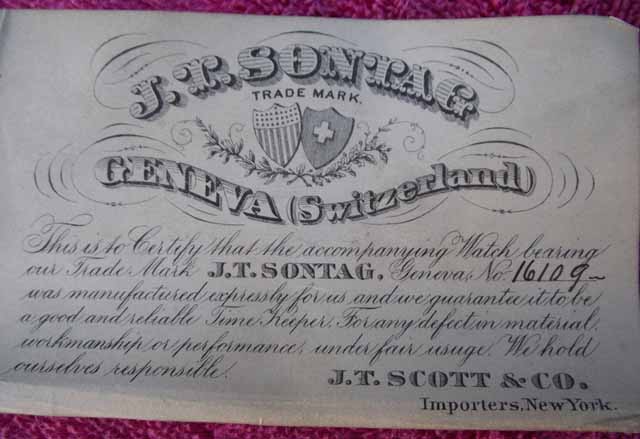 J.T. SONTAG
TRADE MARK.
GENEVA (Switzerland)
This is to Certify that the accompanying Watch bearing
our Trade Mark J.T. SONTAG, Geneva, No. 16109
was manufactured expressly for us and we guarantee it to be
a good and reliable Time Keeper. For any defect in material,
workmanship or performance, under fair usuge. We hold
ourselves responsible.
J.T. SCOTT & CO.
Importers, New York.